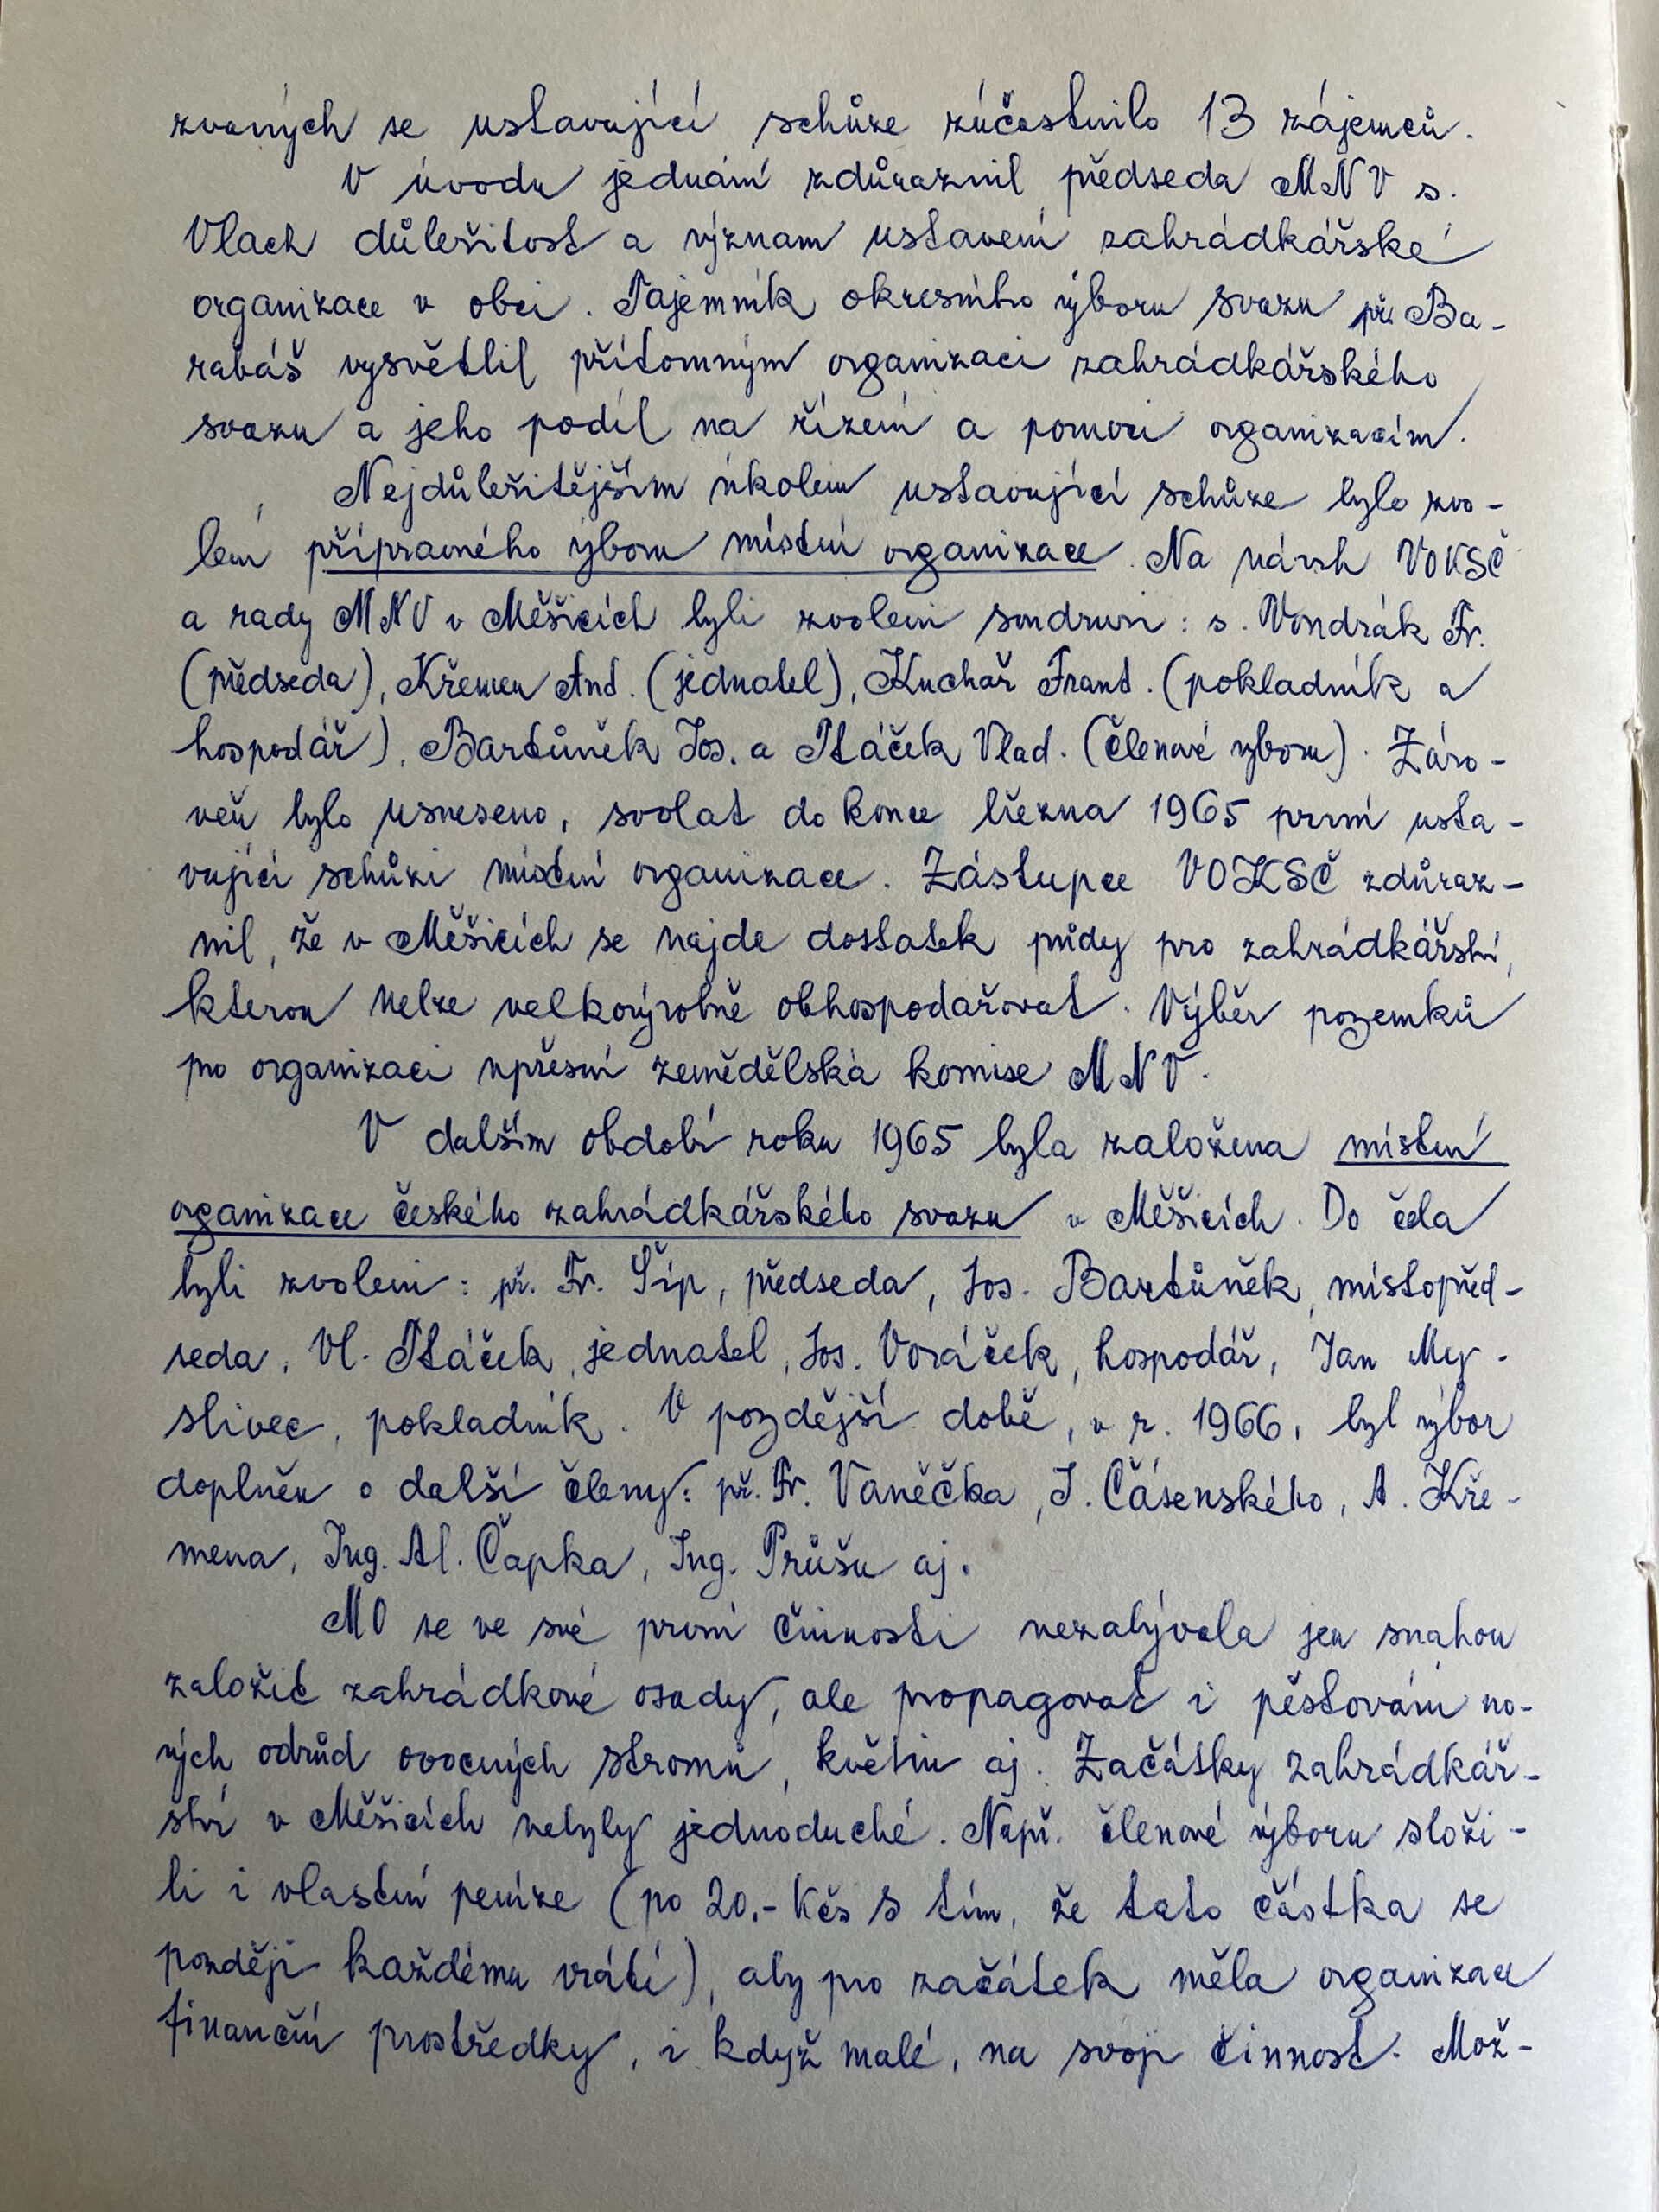 zvaných se ustavující schůze zúčastnilo 13 zájemců.
V úvodu jednání zdůraznil předseda MNV s.
Vlach důležitost a význam ustavení zahrádkářské
organizace v obci. Tajemník okresního výboru svazu př. Ba-
rabáš vysvětlil přítomným organizaci zahrádkářského
svazu a jeho podíl na řízení a pomoci organizacím.
Nejdůležitějším úkolem ustavující schůze bylo zvo-
lení přípravného výboru místní organizace. Na návrh VOKSČ
a rady MNV v Měšicích byli zvoleni soudruzi: s. Vondrák Fr.
(předseda), Křemen Ant. (jednatel), Kuchař Frant. (pokladník a
hospodář), Bartůněk Jos. a Ptáček Vlad. (členové výboru). Záro-
veň bylo usneseno, svolat do konce března 1965 první usta-
vující schůzi místní organizace. Zástupce VOKSČ zdůraz-
nil, že v Měšicích se najde dostatek půdy pro zahrádkářství,
kterou nelze velkovýrobně obhospodařovat. Výběr pozemků
pro organizaci upřesní zemědělská komise MNV.
V dalším období roku 1965 byla založena místní
oganizace českého zahrádkářského svazu v Měšicích. Do čela
byli zvoleni: př. Fr. Šíp, předseda, Jos. Bartůněk, místopřed-
seda, Vl. Ptáček, jednatel, Jos. Voráček, hospodář, Jan My-
slivec, pokladník. V pozdější době, v r. 1966, byl výbor
doplněn o další členy: př. Fr. Vaněčka, J. Čásenského, A. Kře-
mena, Ing. Al. Čapka, Ing. Průšu aj.
MO se ve své první činnosti nezabývala jen snahou
založit zahrádkové osady, ale propagovat i pěstování no-
vých odrůd ovocných stromů, květin aj. Začátky zahrádkář-
ství v Měšicích nebyly jednoduché. Např. členové výboru složi-
li i vlastní peníze (po 20.- Kčs s tím, že tato částka se
později každému vrátí), aby pro začátek měla organizace
finanční prostředky, i když malé, na svoji činnost. Mož-